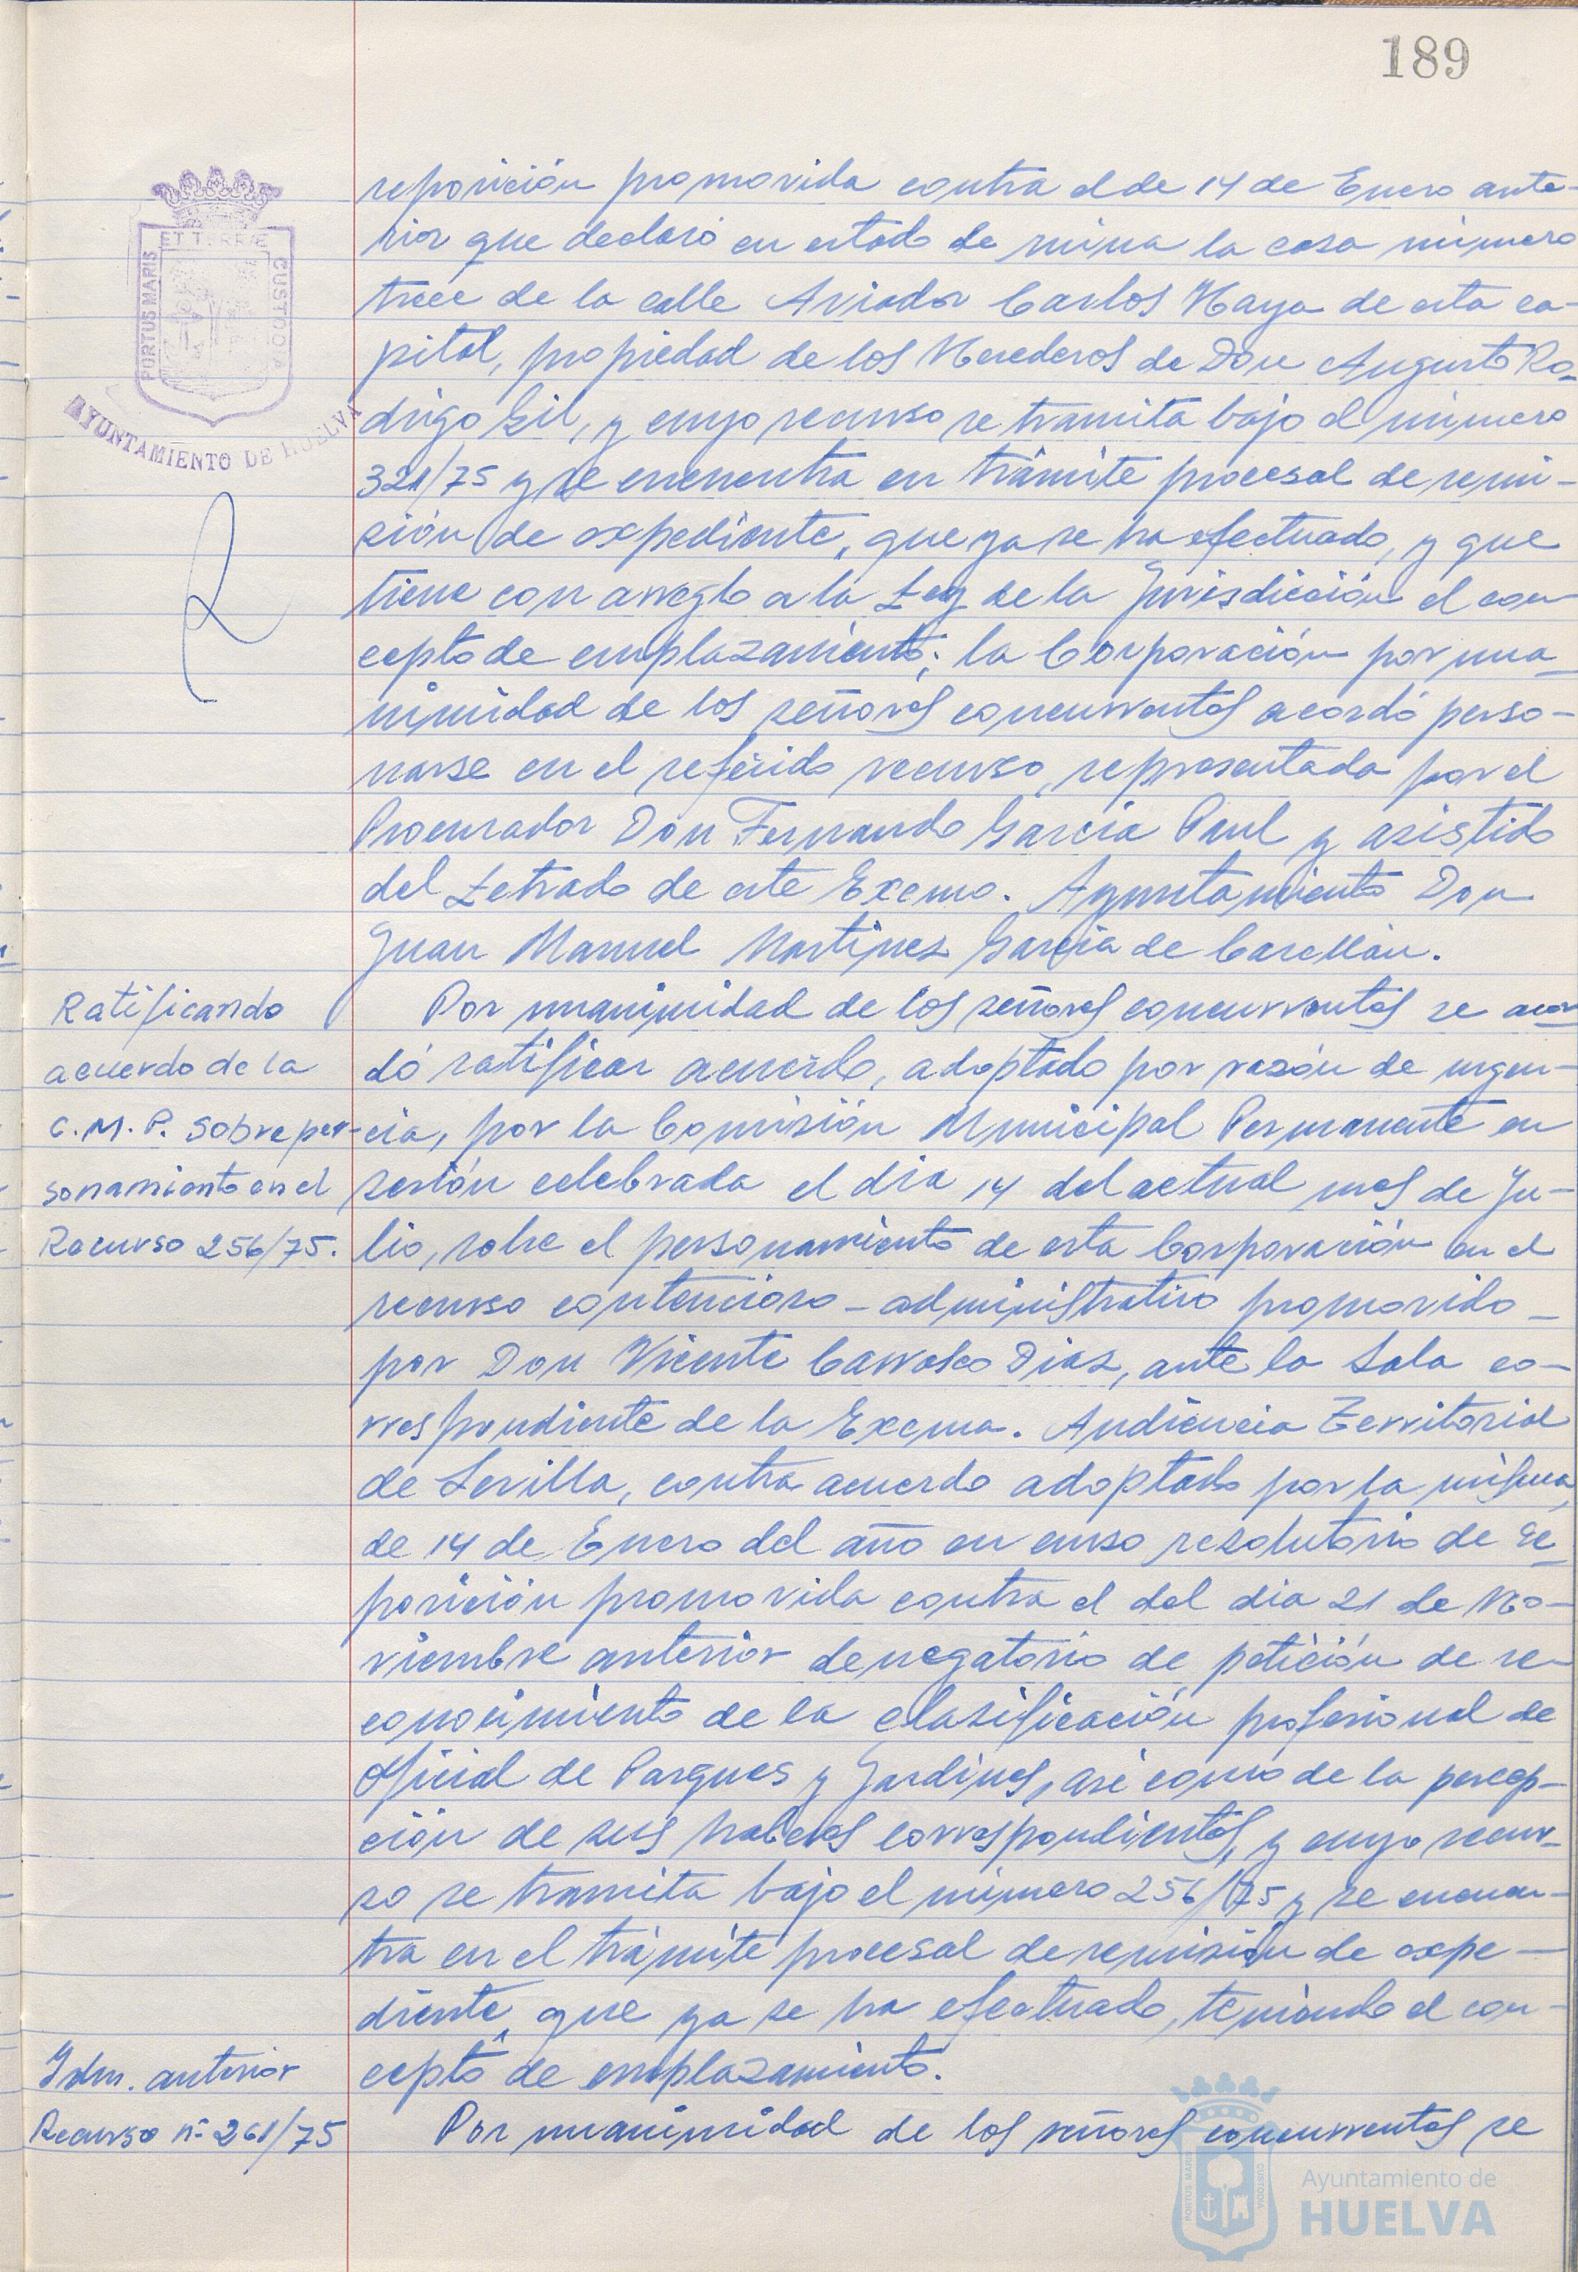 189
reposición promovida contra el de 14 de Enero ante-
rior que declaró en estado de ruina la casa número
trece de la calle Aviador Carlos Haya de esta ca-
pital, propiedad de los Herederos de Don Augusto Ro-
drigo Gil, y cuyo recurso se tramita bajo el número
321/75 y se encuentra en trámite procesal de remi-
sión de expediente, que ya se ha efectuado, y que
tiene con arreglo a la Ley de la Jurisdicción el con-
cepto de emplazamiento; la Corporación por una-
nimidad de los señores concurrentes acordó perso-
narse en el referido recurso, representada por el
Procurador Don Fernando García Paul y asistido
del Letrado de este Excmo. Ayuntamiento Don
Juan Manuel Martínez García de Casellán.
Ratificando
acuerdo de la
C.M.P. sobre per-
sonamiento en el
Recurso 256/75.
Por unanimidad de los señores concurrentes se acor-
dó ratificar acuerdo, adoptado por razón de urgen-
cia, por la Comisión Municipal Permanente en
sesión celebrada el día 14 del actual mes de Ju-
lio, sobre el personamiento de esta Corporación en el
recurso contencioso-administrativo promovido
por Don Vicente Carrasco Diaz, ante la Sala co-
rrespondiente de la Excma. Audiencia Territorial
de Sevilla, contra acuerdo adoptado por la misma,
de 14 de Enero del año en curso resolutorio de re-
posición promovida contra el del dia 21 de No-
viembre anterior denegatorio de petición de re-
conocimiento de la clasificación profesional de
Oficial de Parques y Jardines, asi como de la percep-
ción de sus haberes correspondientes, y cuyo recur-
so se tramita bajo el número 256/75 y se encuen-
tra en el trámite procesal de remisión de expe-
diente, que ya se ha efectuado, teniendo el con-
cepto de emplazamiento.
Idm. anterior
Recurso nº 261/75
Por unanimidad de los señores concurrentes se
PORTUS MARIS
ET TERRAE
CUSTODIA
AYUNTAMIENTO DE HUELVA
PORTUS MARIS
CUSTODIA
Ayuntamiento de
HUELVA